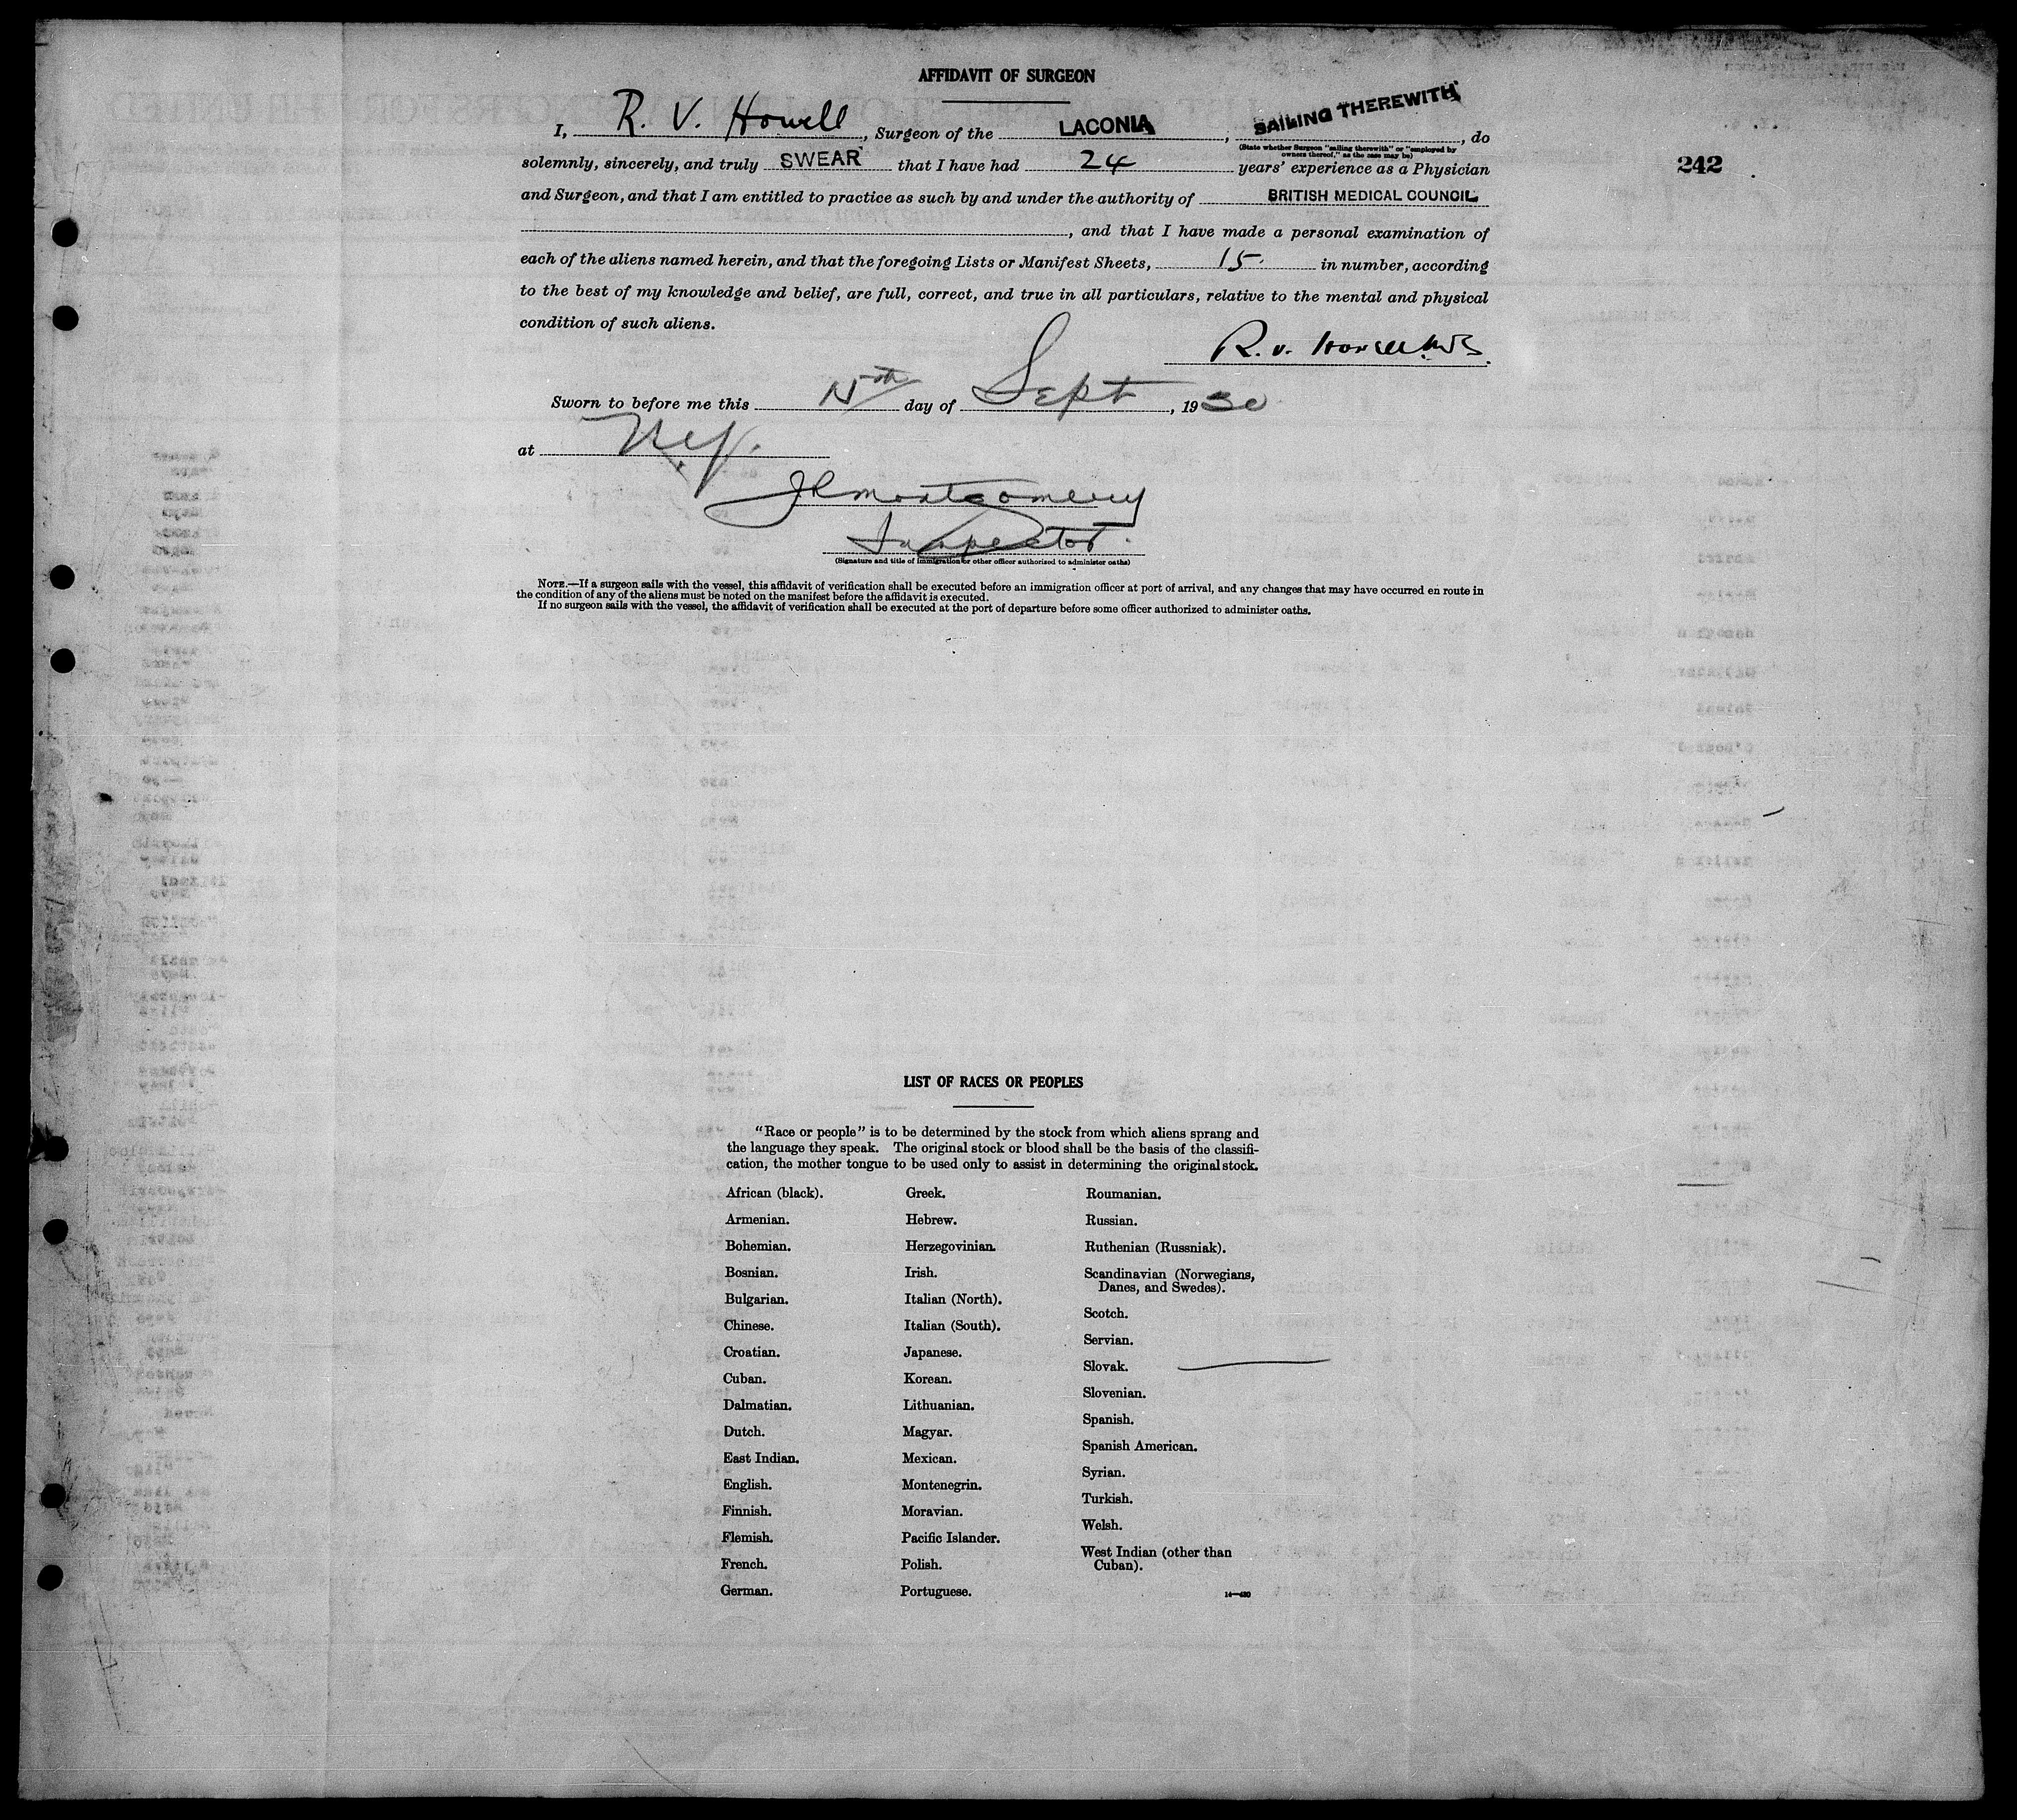 AFFIDAVIT OF SURGEON
I, R. V. Howell, Surgeon of the LACONIA, SAILING THEREWITH, do
(State whether Surgeon "sailing therewith" or "employed by
owners thereof," as the case may be)
solemnly, sincerely, and truly SWEAR that I have had 24 years' experience as a Physician
242
and Surgeon, and that I am entitled to practice as such by and under the authority of BRITISH MEDICAL COUNCIL
, and that I have made a personal examination of
each of the aliens named herein, and that the foregoing Lists or Manifest Sheets, 15. in number, according
to the best of my knowledge and belief, are full, correct, and true in all particulars, relative to the mental and physical
condition of such aliens.
R. V. Howell
Sworn to before me this 15th day of Sept, 1930
at N.Y.
JR Montgomery
Inspector.
(Signature and title of immigration or other officer authorized to administer oaths)
NOTE.—If a surgeon sails with the vessel, this affidavit of verification shall be executed before an immigration officer at port of arrival, and any changes that may have occurred en route in
the condition of any of the aliens must be noted on the manifest before the affidavit is executed.
If no surgeon sails with the vessel, the affidavit of verification shall be executed at the port of departure before some officer authorized to administer oaths.
LIST OF RACES OR PEOPLES
"Race or people" is to be determined by the stock from which aliens sprang and
the language they speak. The original stock or blood shall be the basis of the classifi-
cation, the mother tongue to be used only to assist in determining the original stock.
African (black).
Armenian.
Bohemian.
Bosnian.
Bulgarian.
Chinese.
Croatian.
Cuban.
Dalmatian.
Dutch.
East Indian.
English.
Finnish.
Flemish.
French.
German.
Greek.
Hebrew.
Herzegovinian.
Irish.
Italian (North).
Italian (South).
Japanese.
Korean.
Lithuanian.
Magyar.
Mexican.
Montenegrin.
Moravian.
Pacific Islander.
Polish.
Portuguese.
Roumanian.
Russian.
Ruthenian (Russniak).
Scandinavian (Norwegians,
Danes, and Swedes).
Scotch.
Servian.
Slovak.
Slovenian.
Spanish.
Spanish American.
Syrian.
Turkish.
Welsh.
West Indian (other than
Cuban).